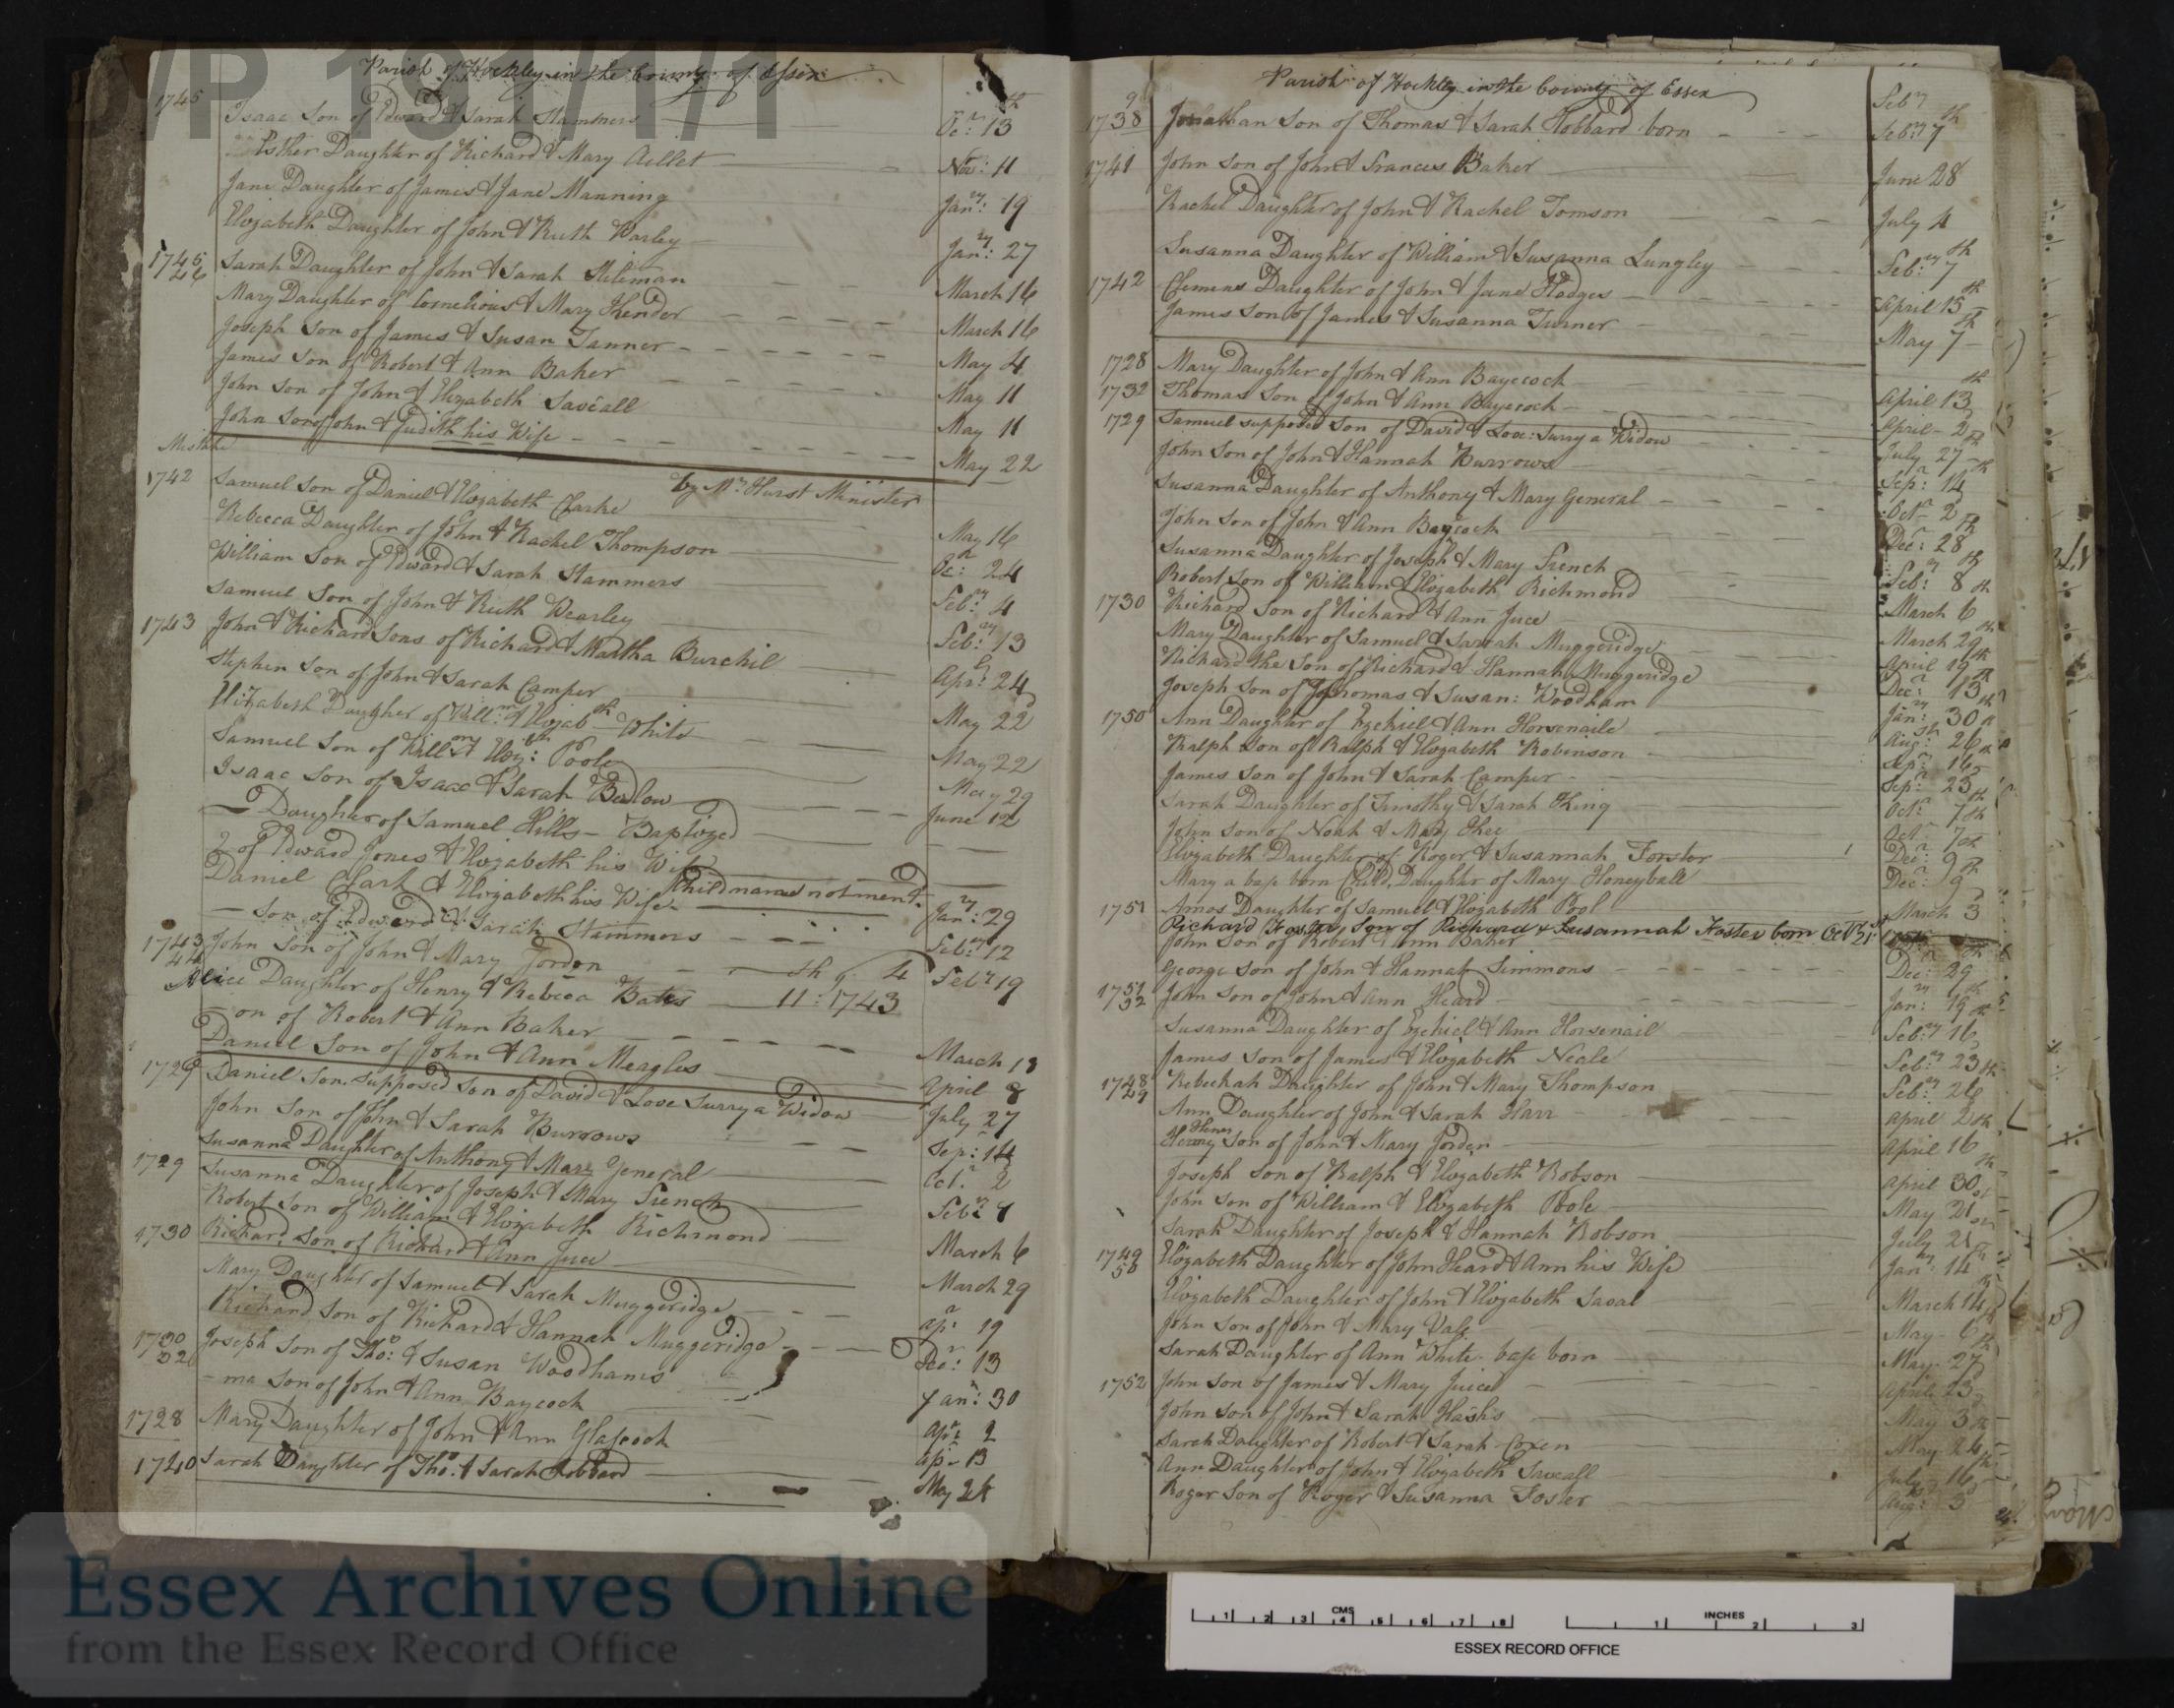 D/P 191/1/1
Parish of Hockley in the County of Essex
1745 Isaac Son of Edward & Sarah Stammers Oc:r 13th
Esther Daughter of Richard & Mary Aillet Nov:r 11
Jane Daughter of James & Jane Manning Jan:ry 19
Elizabeth Daughter of John & Ruth Warley Jan:ry 27
1745/46 Sarah Daughter of John & Sarah Stileman March 16
Mary Daughter of Cornelious & Mary Kender March 16
Joseph Son of James & Susan Tanner May 4
James Son of Robert & Ann Baker May 11
John Son of John & Elizabeth Saveall May 11
John Son of John & Judith his Wife May 22
Mistake by Mr. Hurst Minister
1742 Samuel Son of Daniel & Elizabeth Clarke May 16
Rebecca Daughter of John & Rachel Thompson Oc:r 24
William Son of Edward & Sarah Stammers Feb:ry 4
Samuel Son of John & Ruth Wearley Feb:ry 13
1743 John & Richard Sons of Richard & Martha Burchil Apr:l 24
Stephen Son of John & Sarah Camper May 22
Elizabeth Daugher of Will:m & Elizab:th White May 22
Samuel Son of Will:m & Eliz:th Poole May 29
Isaac Son of Isaac & Sarah Bedlow June 12
— Daugher of Samuel Hills – Baptized
2 of Edward Jones & Elizabeth his Wife
Daniel Clark & Elizabeth his Wife Child name not ment.d Jan:ry 29
— Son of Edward & Sarah Stammers Feb:ry 12
1743/44 John Son of John & Mary Jordon Feb:ry 19
Alice Daughter of Henry & Rebecca Bates 11th: 1743/4
– on of Robert & Ann Baker March 18
Daniel Son of John & Ann Meagles April 8
1729 Daniel Son supposed Son of David & Love Surry a Widow July 27
John Son of John & Sarah Burrows Sep:r 14
Susanna Daughter of Anthony & Mary General Oct.r 2
1729 Susanna Daughter of Joseph & Mary French Feb:ry 8
Robert Son of William & Elizabeth Richmond March 6
1730 Richard Son of Richard & Ann Juce March 29
Mary Daughter of Samuel & Sarah Muggeridge ap:r 19
Richard Son of Richard & Hannah Muggeridge Dec:r 13
1730/32 Joseph Son of Tho:s & Susan Woodhams Jan:y 30
– ma Son of John & Ann Baycock Ap:r 2
1728 Mary Daughter of John & Ann Glascock Ap:r 13
1740 Sarah Daughter of Tho:s & Sarah Hobbard May 28
Parish of Hockley in the County of Essex
1738/9 Jonathan Son of Thomas & Sarah Hobbard born Feb:ry 7th
1741 John Son of John & Frances Baker June 28
Rachel Daughter of John & Rachel Tomson July 4
Susanna Daughter of William & Susanna Lungley Feb:ry 7th
1742 Clemens Daughter of John & Jane Hodges April 15th
James Son of James & Susanna Turner May 7th
1728 Mary Daughter of John & Ann Baycock April 13th
1732 Thomas Son of John & Ann Baycock April 2d
1729 Samuel supposed Son of David & Love: Surry a Widow July 27th
John Son of John & Hannah Burrows Sep:r 14th
Susanna Daughter of Anthony & Mary General Oct:r 2d
John Son of John & Ann Baycock Dec:r 28th
Susanna Daughter of Joseph & Mary French Feb:ry 8th
Robert Son of William & Elizabeth Richmond March 6th
1730 Richard Son of Richard & Ann Juce March 29th
Mary Daughter of Samuel & Sarah Muggeridge April 19th
Richard the Son of Richard & Hannah Muggeridge Dec:r 13th
Joseph Son of Thomas & Susan: Woodham Jan:ry 30th
1750 Ann Daughter of Ezekiel & Ann Horsenaile Aug:st 26th
Ralph Son of Ralph & Elizabeth Robinson Sep:r 16th
James Son of John & Sarah Camper Sep:r 23d
Sarah Daughter of Timothy & Sarah King Oct:r 7th
John Son of Noah & Mary Khee Oct:r 7th
Elizabeth Daughter of Roger & Susannah Forster Dec:r 9th
Mary a base born Child, Daughter of Mary Honeyball Dec:r 9th
1751 Amos Daughter of Samuel & Elizabeth Pool March 3
Richard Foster, Son of Richard & Susannah Foster born Oct 21st
John Son of Robert & Ann Baker
George Son of John & Hannah Simmons Dec:r 29th
1751/52 John Son of John & Ann Heard Jan:ry 19th
Susanna Daughter of Ezekiel & Ann Horsenail Feb:ry 16
James Son of James & Elizabeth Neale Feb:ry 23d
1748/49 Rebeckah Daughter of John & Mary Thompson Feb:ry 26th
Ann Daughter of John & Sarah Harr April 2d
Henry Son of John & Mary Jorden April 16th
Joseph Son of Ralph & Elizabeth Robson April 30th
John Son of William & Elizabeth Poole May 21st
Sarah Daughter of Joseph & Hannah Robson July 21st
1749/50 Elizabeth Daughter of John Heard & Ann his Wife Jan:ry 14th
Elizabeth Daughter of John & Elizabeth Saval March 14th
John Son of John & Mary Vale May 6th
Sarah Daughter of Ann White base born May 27th
1752 John Son of James & Mary Juice April 23d
John Son of John & Sarah Hasks May 3d
Sarah Daughter of Robert & Sarah Coxen May 24th
Ann Daughter of John & Elizabeth Saveall July 16th
Roger Son of Roger & Susanna Foster Aug:st 3
Essex Archives Online
from the Essex Record Office
CMS
1 2 3 4 5 6 7 8
INCHES
1 2 3
ESSEX RECORD OFFICE